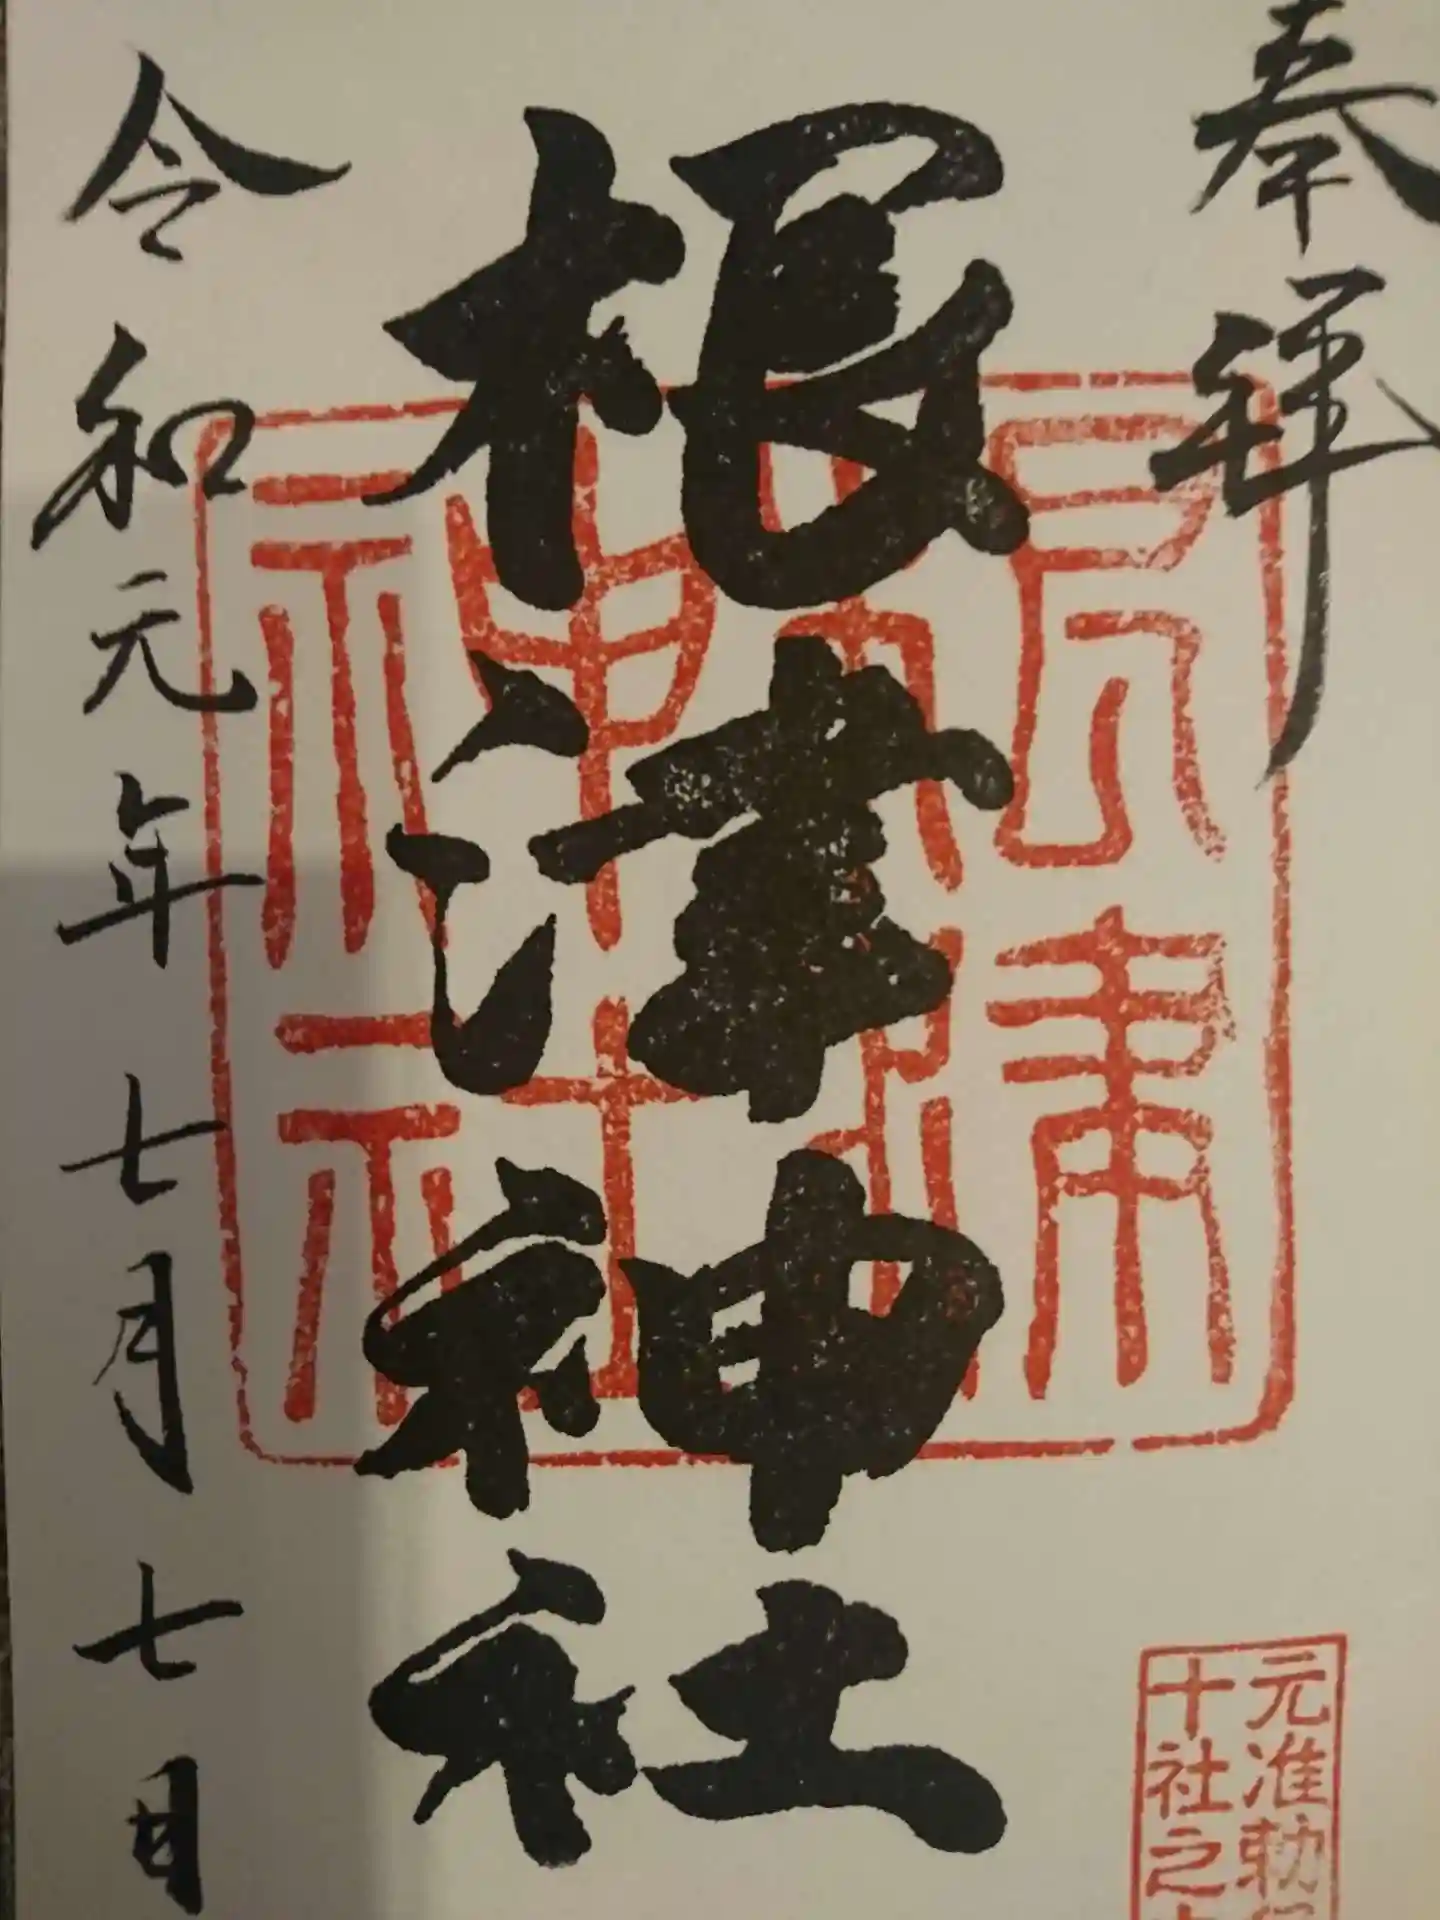 奉拝
根津神社
令和元年七月七日
元准勅
十社之